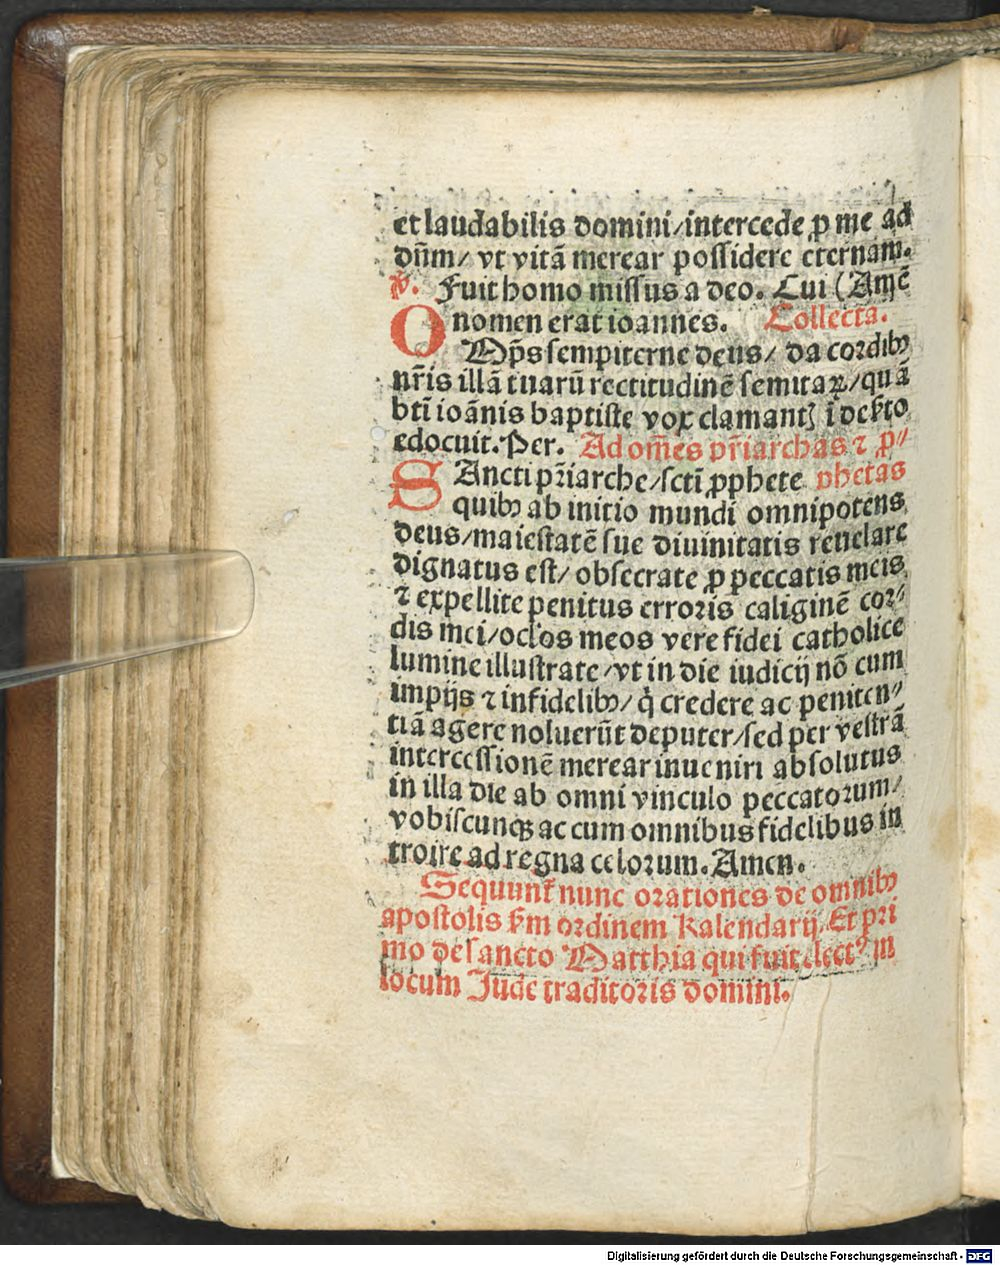 et laudabilis domini/intercede ꝓ me ad
dn̄m/ vt vitā merear possidere eternam.
℣. Fuit homo missus a deo. Cui (Amē
nomen erat ioannes. Collecta.
OMp̄s sempiterne deus/ da cordibꝫ
nr̄is illā tuarū rectitudinē semitaꝝ/quā
bt̄i ioānis baptiste vox clamantꝭ ī deẜto
edocuit. Per. Ad om̄es pr̄iarchas ⁊ ꝓ⸗
SAncti pr̄iarche/scti ꝓphete phetas
quibꝫ ab initio mundi omnipotens
deus/maiestatē sue diuinitatis reuelare
dignatus est/ obsecrate ꝓ peccatis meis
⁊ expellite penitus erroris caliginē cor⸗
dis mei/oc̄los meos vere fidei catholice
lumine illustrate/vt in die iudicij nō cum
impijs ⁊ infidelibꝫ/ q̇ credere ac peniten⸗
tiā agere noluerūt deputer/sed per vestrā
intercessionē merear inueniri absolutus
in illa die ab omni vinculo peccatorum/
vobiscunqꝫ ac cum omnibus fidelibus in
troire ad regna celorum. Amen.
Sequunt᷑ nunc orationes de omnibꝫ
apostolis ẜm ordinem Kalendarij. Et pri
mo de sancto Matthia qui fuit electꝰ in
locum Jude traditoris domini.
Digitalisierung gefördert durch die Deutsche Forschungsgemeinschaft - DFG